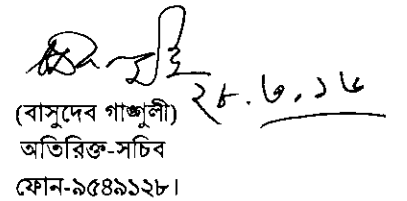 ২৮.৬.১৬
(বাসুদেব গাঙ্গুলী)
অতিরিক্ত-সচিব
ফোন-৯৫৪৯১২৮।